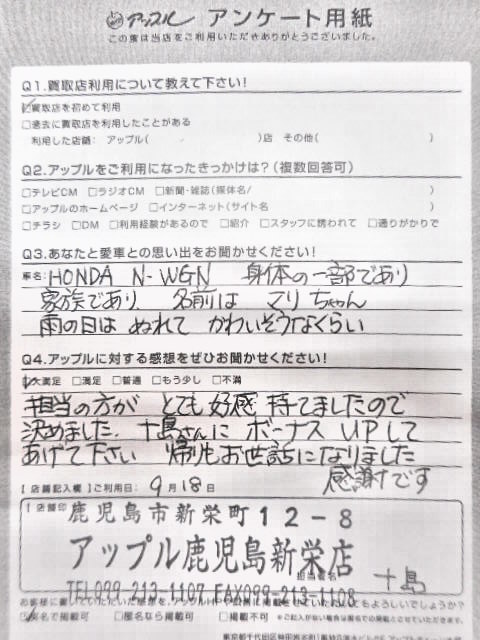 アップル アンケート用紙
この度は当店をご利用いただきありがとうございました。
Q1.買取店利用について教えて下さい!
☑買取店を初めて利用
□過去に買取店を利用したことがある
利用した店舗: アップル( )店 その他( )
Q2.アップルをご利用になったきっかけは?(複数回答可)
□テレビCM □ラジオCM □新聞・雑誌(媒体名/ )
□アップルのホームページ □インターネット(サイト名 )
□チラシ □DM □利用経験があるので □紹介 □スタッフに誘われて □通りがかりで
Q3.あなたと愛車との思い出をお聞かせください!
車名: HONDA N-WGN 身体の一部であり
家族であり 名前は マリちゃん
雨の日は ぬれて かわいそうなくらい
Q4.アップルに対する感想をぜひお聞かせください!
☑大満足 □満足 □普通 □もう少し □不満
担当の方が とても 好感 持てましたので
決めました. 十島さんに ボーナス UPして
あげて下さい 帰りもお世話になりました
感謝です
【店舗記入欄】ご利用日: 9月18日
【店舗印】
鹿児島市新栄町12-8
アップル鹿児島新栄店
担当者名 十島
TEL099-213-1107 FAX099-213-1108
お客様に書いていただいた感想を、アップルHPや
☑名で掲載可 □匿名なら掲載可 □掲載不可